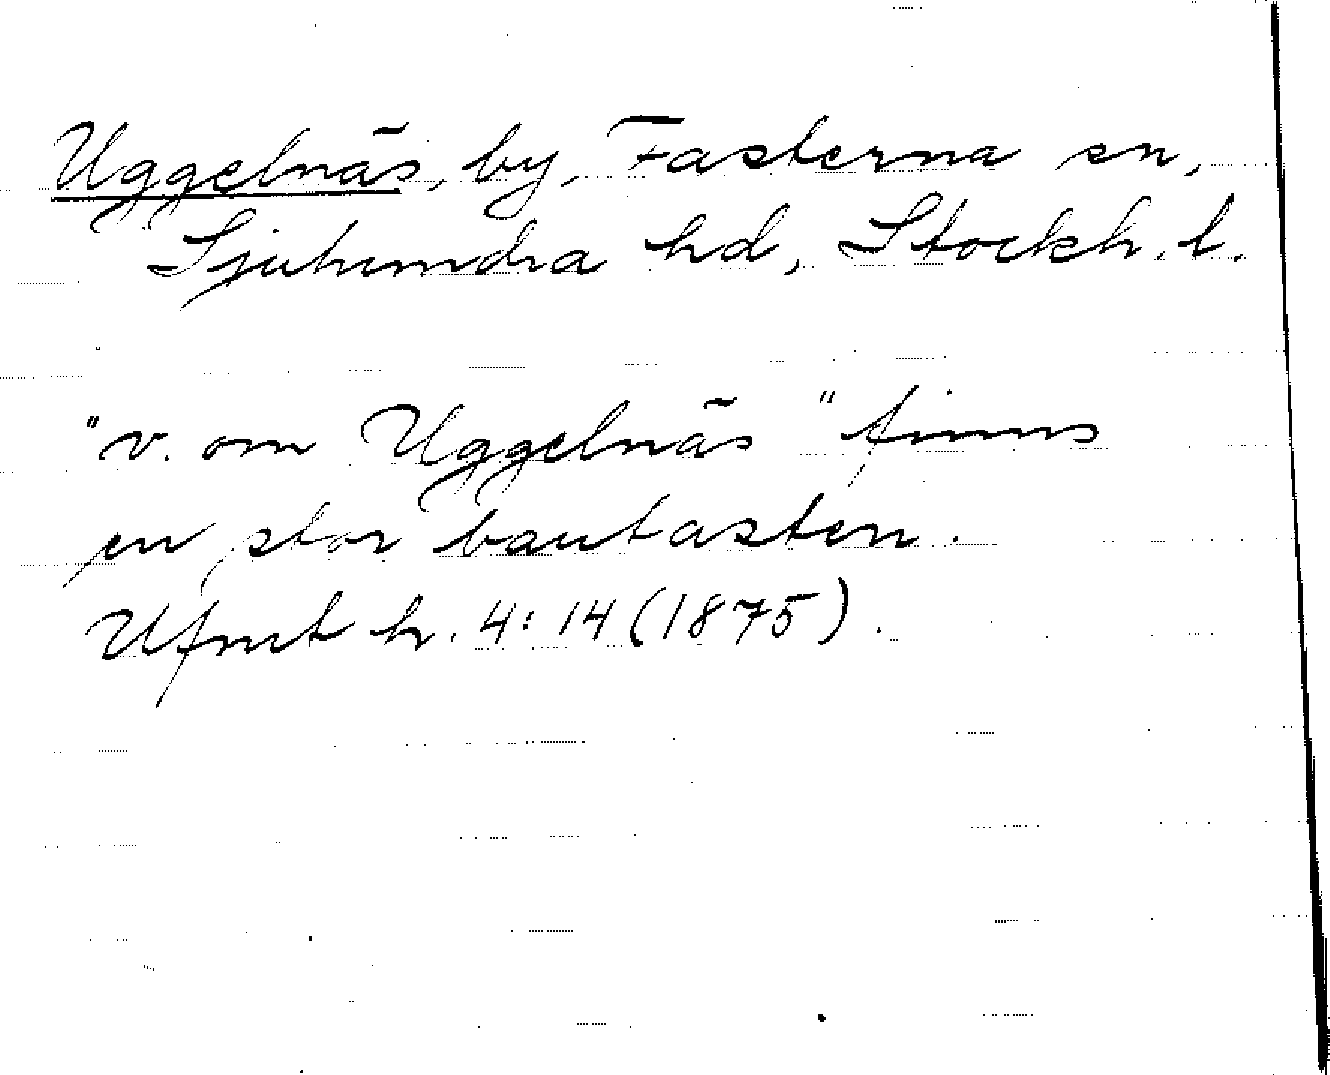 Uggelnäs, by, Fasterna sn,
Sjuhundra hd, Stockh. l.
"v. om Uggelnäs" finns
en stor bautasten.
Ufmt h. 4: 14 (1875).